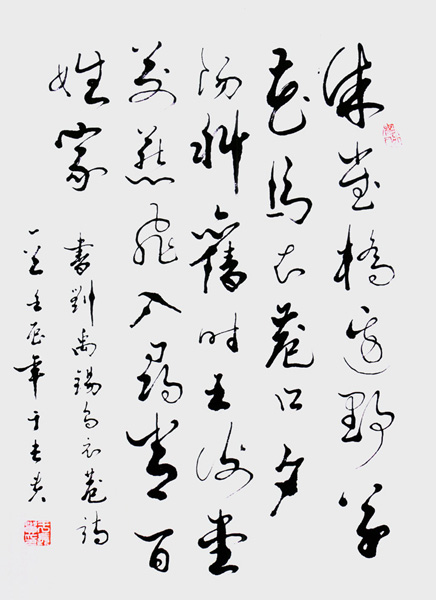 朱雀橋邊野草
花烏衣巷口夕
陽斜舊時王謝堂
前燕飛入尋常百
姓家
書劉禹錫烏衣巷詩
壬辰年于